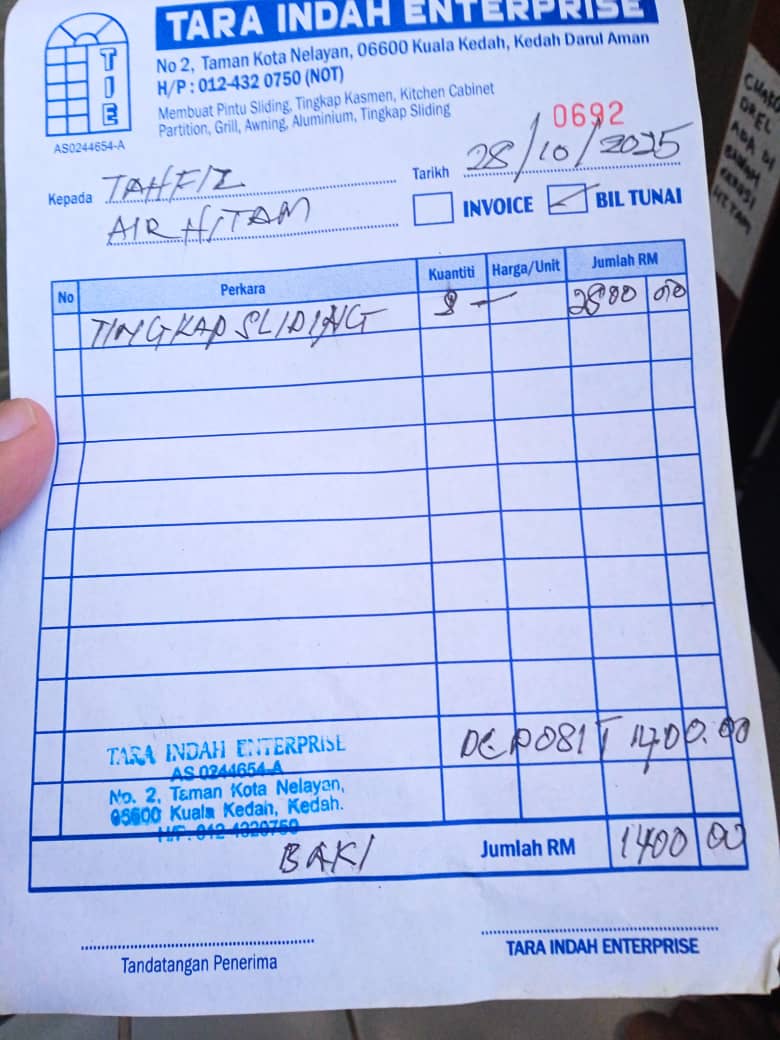 TARA INDAH ENTERPRISE
TIE
AS0244654-A
No 2, Taman Kota Nelayan, 06600 Kuala Kedah, Kedah Darul Aman
H/P : 012-432 0750 (NOT)
Membuat Pintu Sliding, Tingkap Kasmen, Kitchen Cabinet
Partition, Grill, Awning, Aluminium, Tingkap Sliding
0692
Kepada TAHFIZ
AIR HITAM
Tarikh 28/10/2025
INVOICE BIL TUNAI
No Perkara Kuantiti Harga/Unit Jumlah RM
TINGKAP SLIDING 8 – 2800 00
DEPOSIT 1400.00
TARA INDAH ENTERPRISE
AS 0244654-A
No. 2, Taman Kota Nelayan,
06600 Kuala Kedah, Kedah.
H/P : 012-4320750
BAKI Jumlah RM 1400 00
Tandatangan Penerima
TARA INDAH ENTERPRISE
ADA DI
BAWAH
KERUSI
HITAM